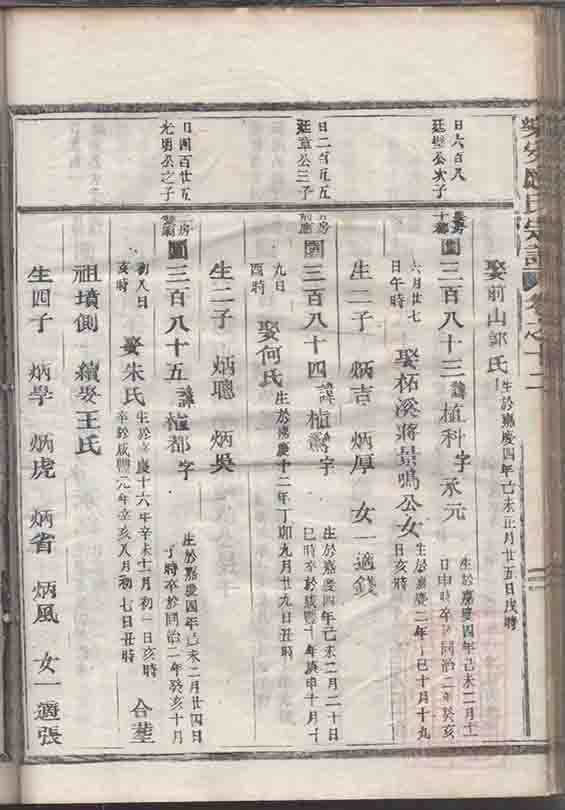 娶前山郭氏 生於嘉慶四年己未正月廿五日戌時
日六百八
廷璧公次子
三百八十三 諱 植科 字 承元 生於嘉慶四年己未二月十一
日申時卒於同治二年癸亥
六月廿七
日午時
娶柘溪蔣景鳴公女 生於嘉慶二年丁巳十月十九
日亥時
生二子 炳吉 炳厚 女一適錢
日二百五五
廷章公三子
三百八十四 諱 植 字 生於嘉慶四年己未二月二十日
巳時卒於咸豐十年庚申十月十
九日
酉時
娶何氏 生於嘉慶十二年丁卯九月廿九日丑時
生二子 炳聰 炳吳
日四百廿五
光勇公之子
三百八十五 諱 植都 字 生於嘉慶四年己未二月廿四日
丁時卒於同治二年癸亥十月
初八日
亥時
娶朱氏 生於嘉慶十六年辛未十二月初一日亥時
卒於咸豐元年辛亥八月初七日丑時
合塟
祖墳側 續娶王氏
生四子 炳學 炳虎 炳省 炳風 女一適張